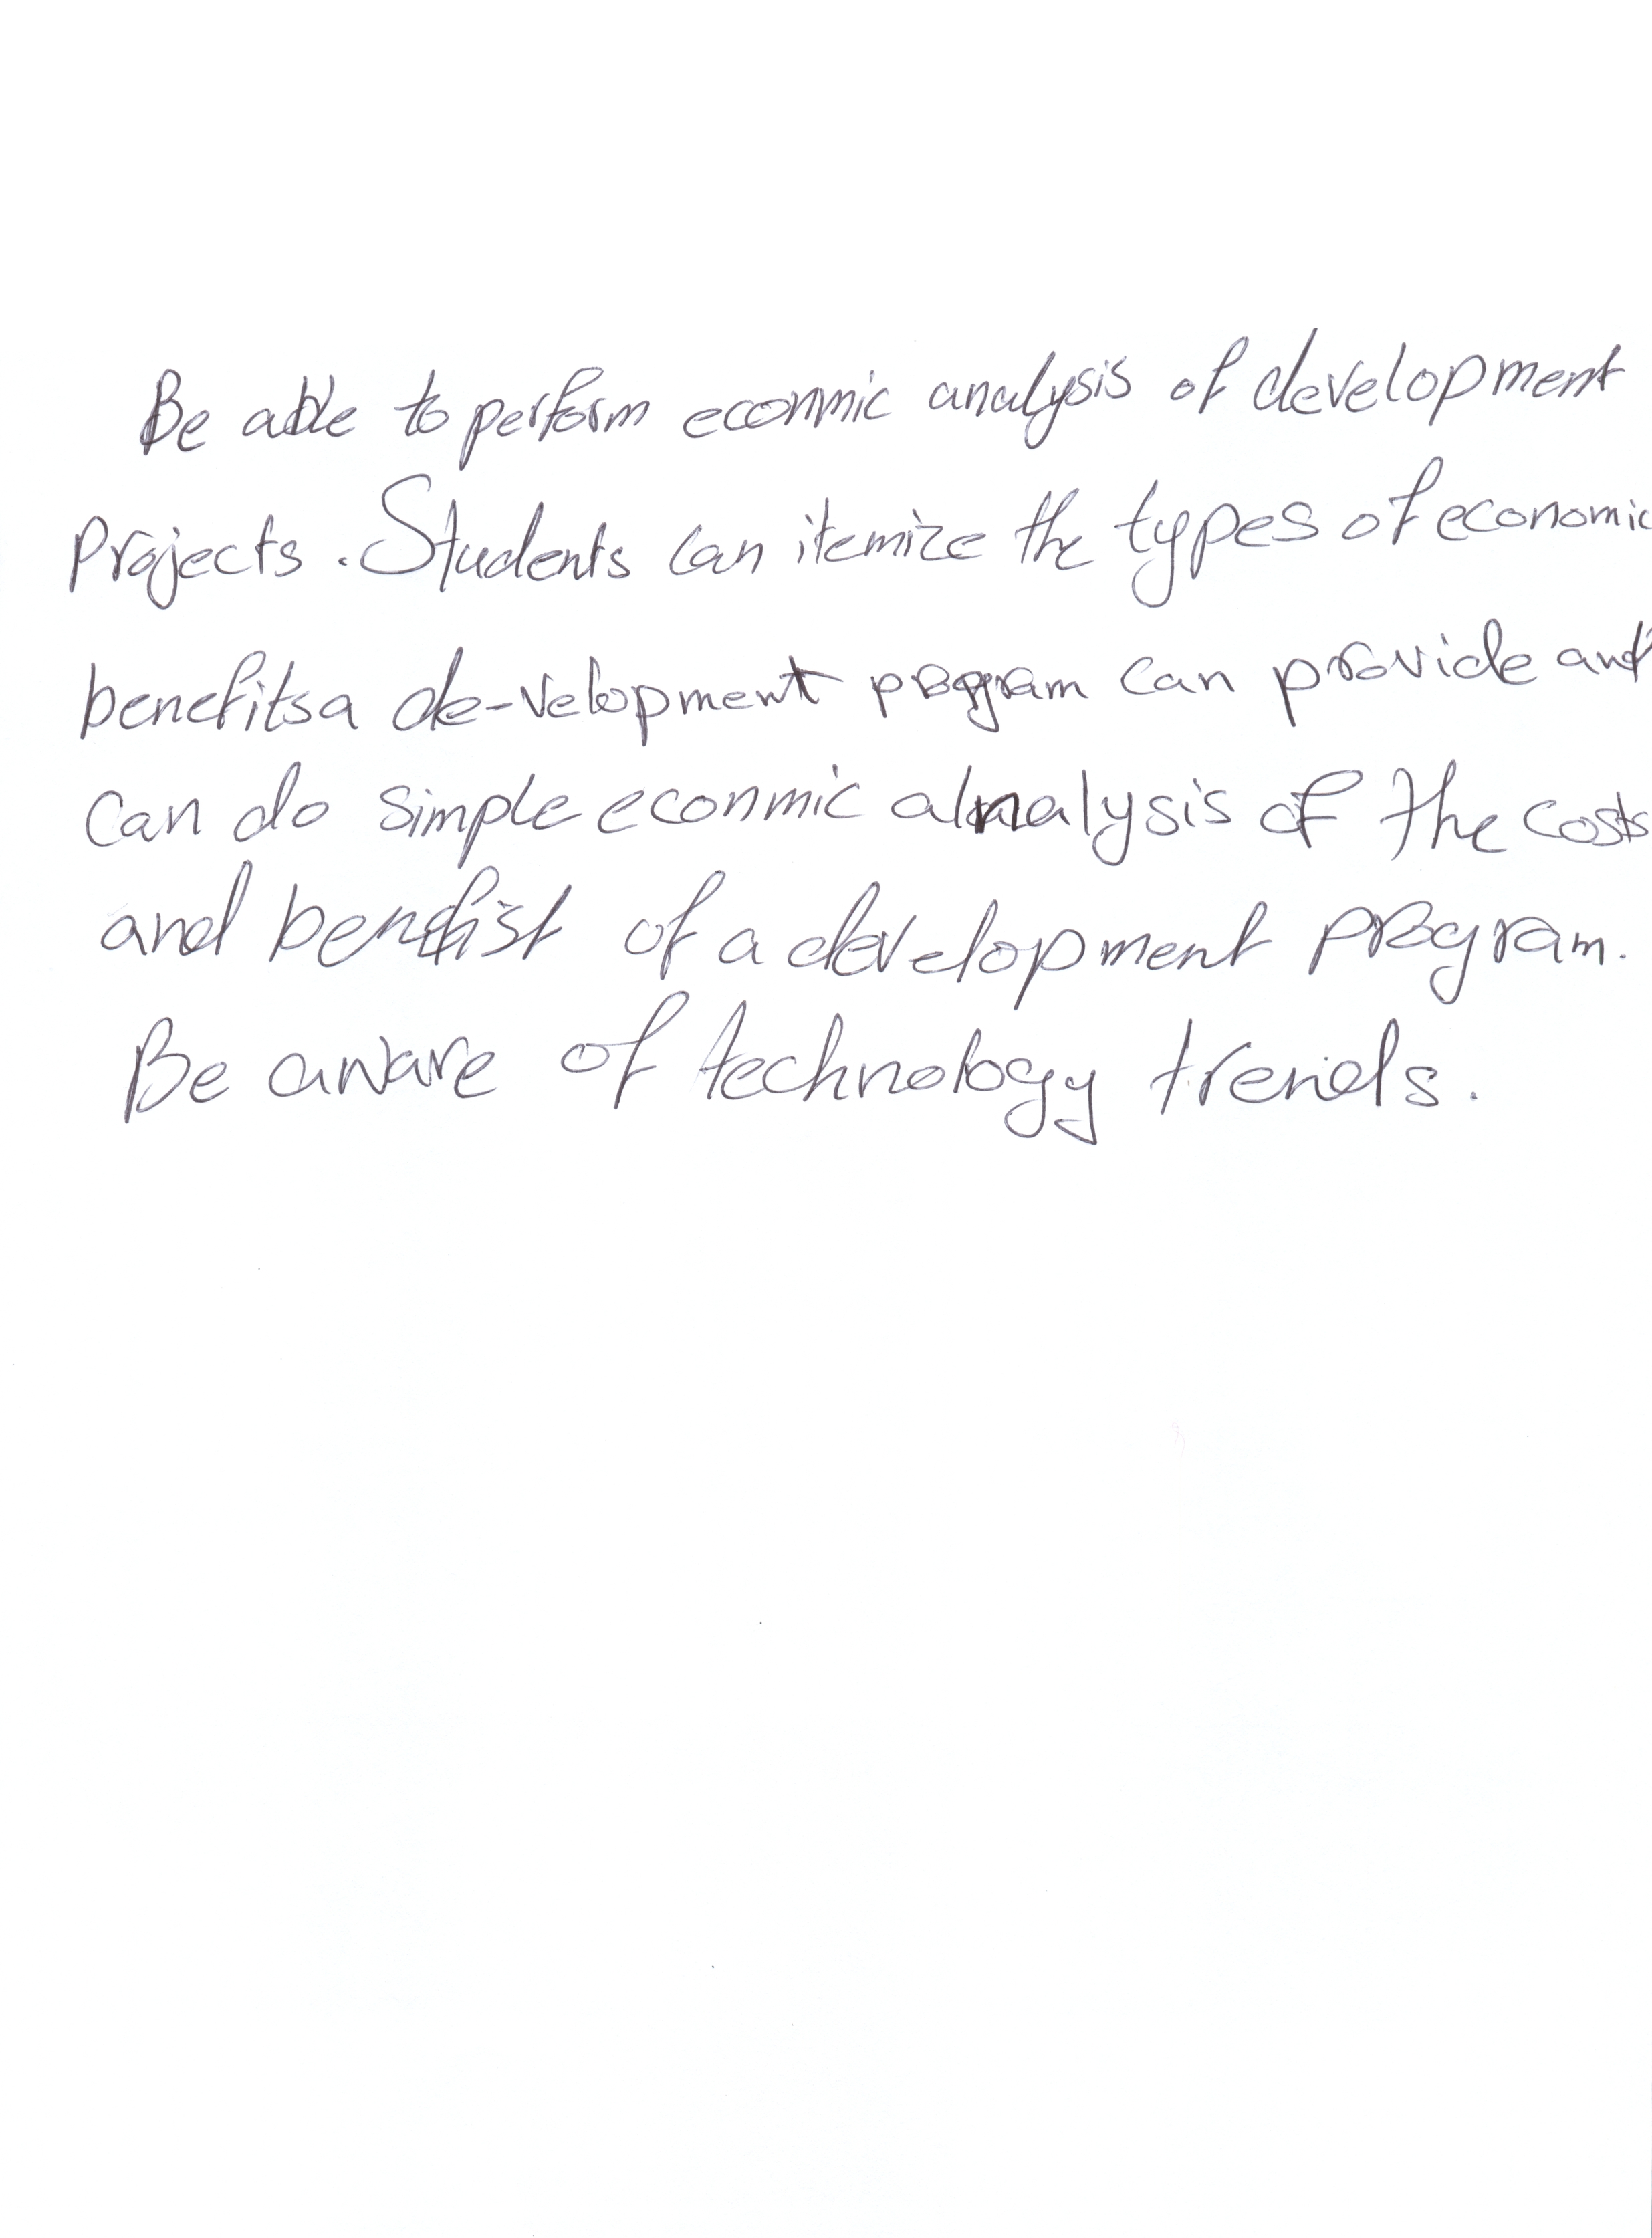 Be able to perform econmic analysis of development
Projects. Students can itemize the types of economic
benefitsa de-velopment program can provide and
can do simple econmic alnalysis of the costs
and benefist of a development program.
Be aware of technology trends.